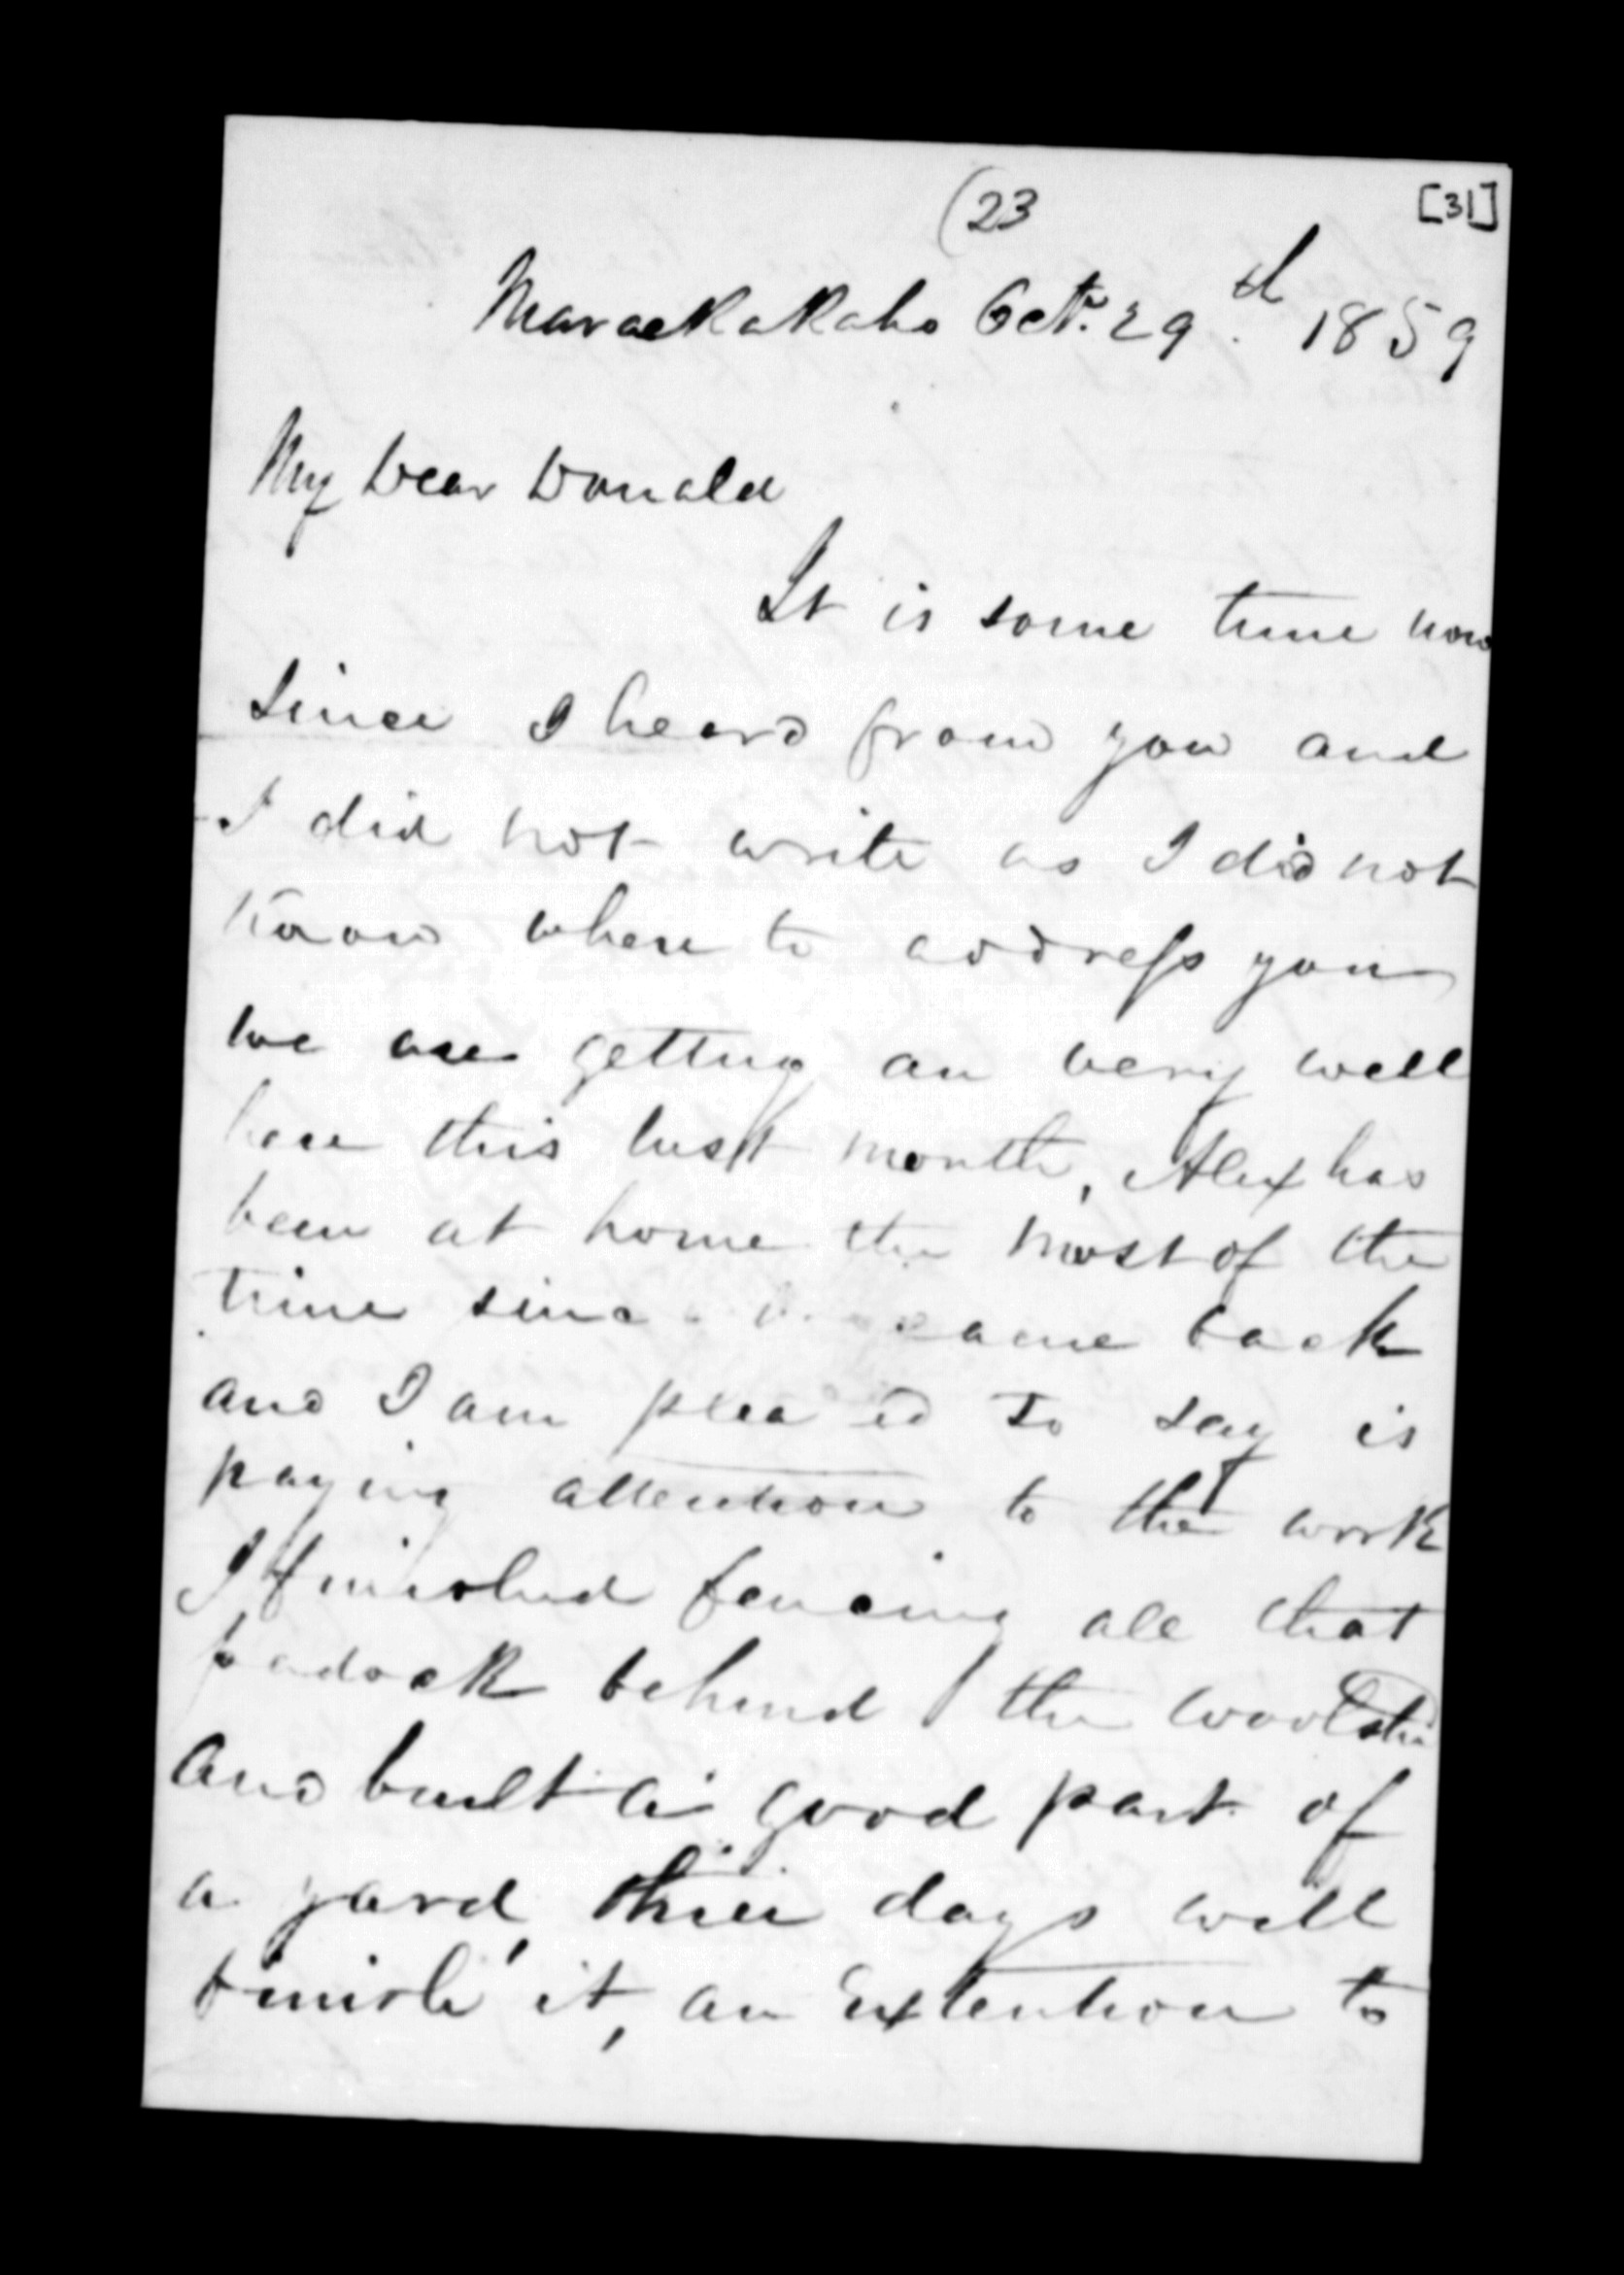 (23
[31]
Maraekakaho Octr. 29th. 1859
My Dear Donald
It is some time now
since I heard from you and
I did not write as I did not
know where to address you
we are getting an very well
here this last month, Alex has
been at home the most of the
time since came back
and I am pleased to say is
paying attention to the work
I finished fencing all that
padock behind the
and built a good part of
a yard, three days will
finish it, an Extention to